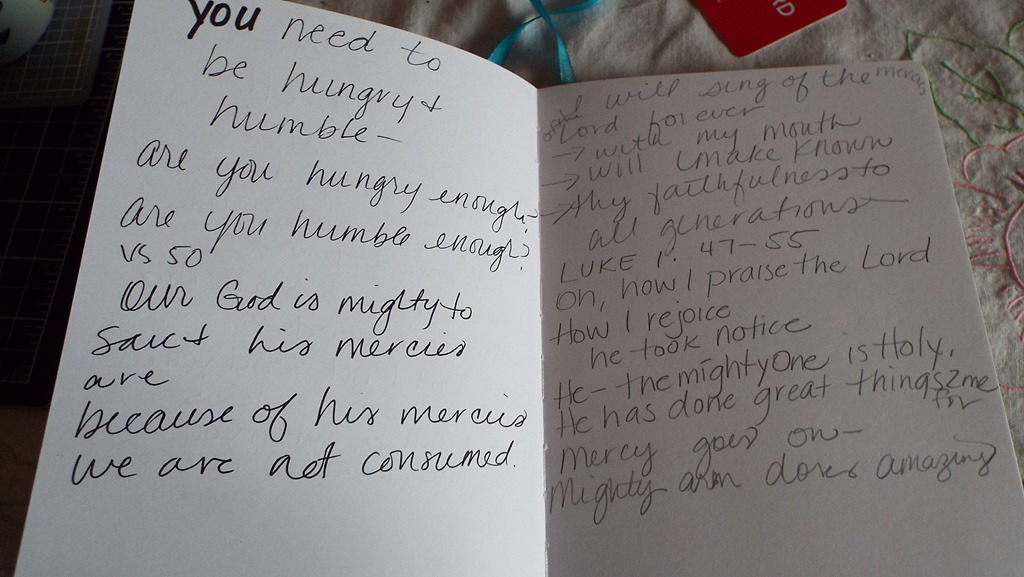 you need to
be hungry &
humble—
are you hungry enough?
are you humble enough?
vs 50
our God is mighty to
save & his mercies
are
because of his mercies
we are not consumed.
I will sing of the mercies
of the Lord forever
→ with my mouth
→ will I make known
→ thy faithfulness to
all generations—
LUKE 1: 47-55
Oh, how I praise the Lord
How I rejoice
he took notice
He - the mighty One is Holy.
He has done great things 2 me
for
Mercy goes on—
Mighty arm does amazing
RD